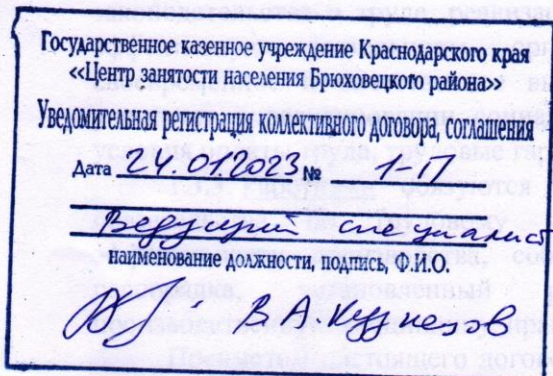 Государственное казенное учреждение Краснодарского края
«Центр занятости населения Брюховецкого района»
Уведомительная регистрация коллективного договора, соглашения
Дата 24.01.2023 № 1-П
Ведущий специалист
наименование должности, подпись, Ф.И.О.
В.А. Кузнецов